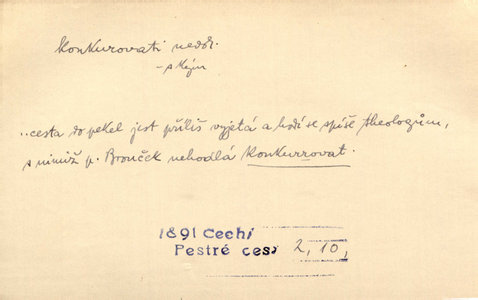 konkurovati nedok.
– s kým
..cesta do pekel jest příliš vyjetá a hodí se spíše theologům,
s nimiž p. Brouček nehodlá konkurrovat.
1891 Cechí
Pestré ces 2, 10,